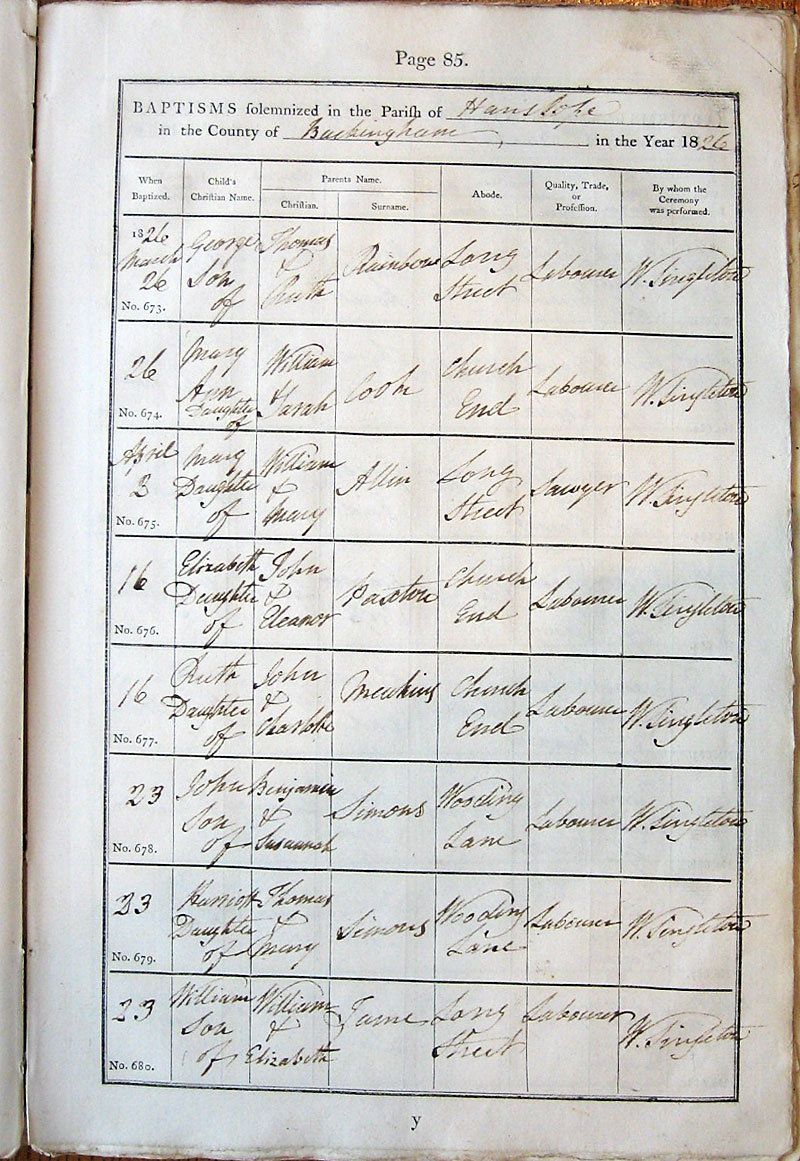 Page 85.
BAPTISMS solemnized in the Parish of Hanslope
in the County of Buckingham, in the Year 1826
When Baptized. Child's Christian Name. Parents Name. Christian. Surname. Abode. Quality, Trade, or Profession. By whom the Ceremony was performed.
1826 March 26 No. 673. George Son of Thomas & Ruth Rainbow Long Street Labourer W. Singleton
26 No. 674. Mary Ann Daughter of William & Sarah Cook Church End Labourer W. Singleton
April 2 No. 675. Mary Daughter of William & Mary Allin Long Street Sawyer W. Singleton
16 No. 676. Elizabeth Daughter of John & Eleanor Paxton Church End Labourer W. Singleton
16 No. 677. Ruth Daughter of John & Charlotte Meakins Church End Labourer W. Singleton
23 No. 678. John Son of Benjamin & Susannah Simons Wooding Lane Labourer W. Singleton
23 No. 679. Harriott Daughter of Thomas & Mary Simons Wooding Lane Labourer W. Singleton
23 No. 680. William Son of William & Elizabeth Long Street Labourer W. Singleton
y